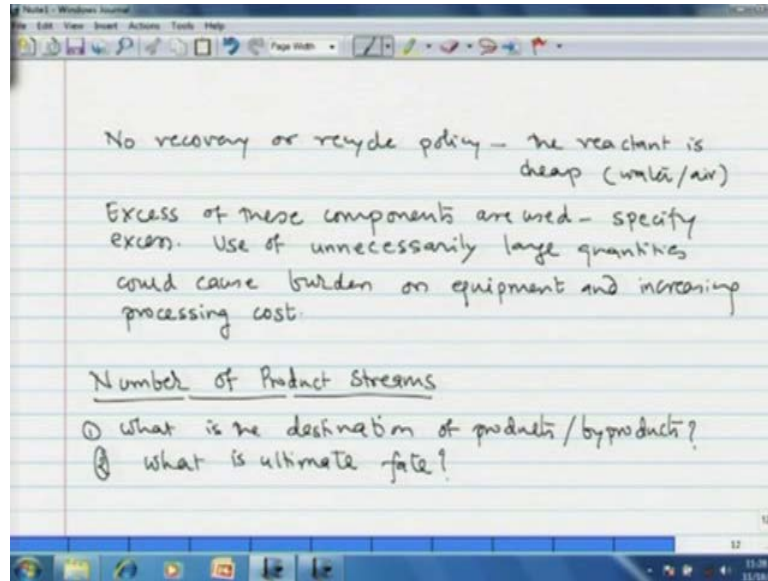 Note1 - Windows Journal
File Edit View Insert Actions Tools Help
Page Width
No recovery or recycle policy – the reactant is
cheap (water/air)
Excess of these components are used – specify
excess. Use of unnecessarily large quantities
could cause burden on equipment and increasing
processing cost.
Number of Product Streams
① What is the destination of products/byproducts?
② What is ultimate fate?
12
11:28